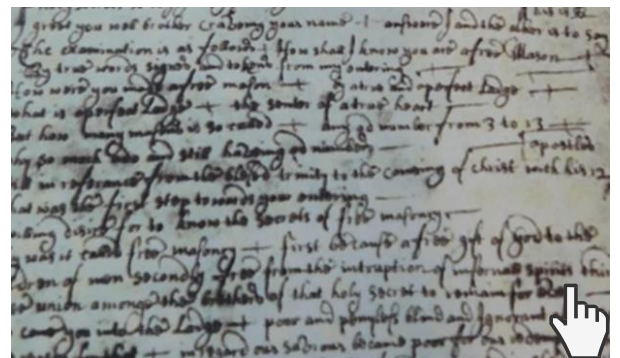 this is
greet you well brother craveing your name + answered J and the other is to say
The examination is as follows + How shall J know you are a free Mason
By true words signes and tokens from my entering
How were you made a free mason + a true and a perfect Lodge +
what is a perfect Lodge + the senter of a true heart
But how many masons is so called + any odd number from 3 to 13 +
why so much adoe and still haveing odd numbers
still in referance from the blesed trinity to the comeing of christ with his 12 apostles
what was the first step towards your entering
desire for to know the secrets of free masonry
why was it called free masonry + first because a free gift of God to the
children of men secondly free from the intruption of infernal spirits
union amonge the brothers of that holy secret to remain for ever
came you into the Lodge + poor and penyless blind and Ignorant
+ in regard our saviour became poor for our